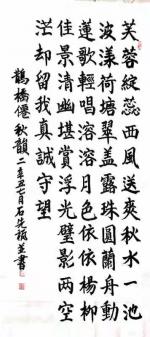 芙蓉綻蕊西風送爽秋水一池
波漾荷塘翠蓋露珠圓蘭舟動
蓮歌輕唱溶溶月色依依楊柳
佳景清幽堪賞浮光璧影兩空
茫却留我真誠守望
鵲橋僊 秋韻 辛丑七月石先並書